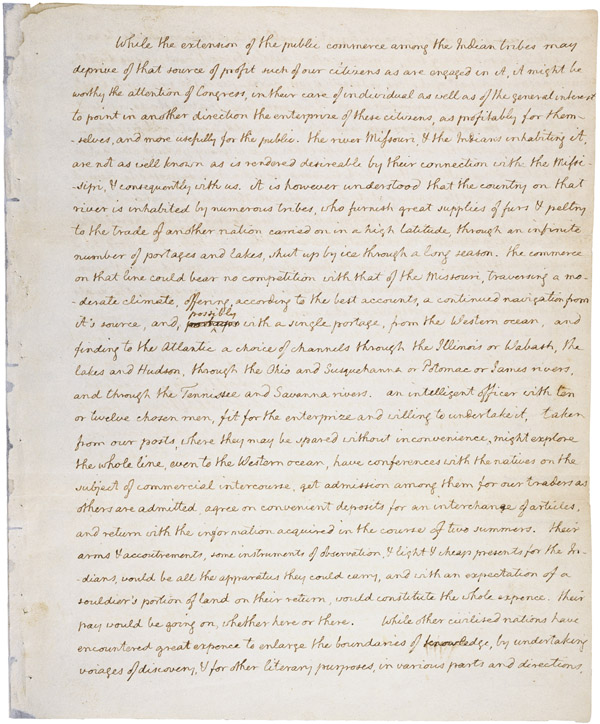 While the extension of the public commerce among the Indian tribes may
deprive of that source of profit such of our citizens as are engaged in it, it might be
worthy the attention of Congress, in their care of individual as well as of the general interest
to point in another direction the enterprize of these citizens, as profitably for them-
-selves, and more usefully for the public. the river Missouri, & the Indians inhabiting it,
are not as well known as is rendered desireable by their connection with the Missi-
-sipi, & consequently with us. it is however understood that the country on that
river is inhabited by numerous tribes, who furnish great supplies of furs & peltry
to the trade of another nation carried on in a high latitude, through an infinite
number of portages and lakes, shut up by ice through a long season. the commerce
on that line could bear no competition with that of the Missouri, traversing a mo-
-derate climate, offering, according to the best accounts, a continued navigation from
it's source, and, possibly with a single portage, from the Western ocean, and
finding to the Atlantic a choice of channels through the Illinois or Wabash, the
lakes and Hudson, through the Ohio and Susquehanna or Potomac or James rivers,
and through the Tennissee and Savanna rivers. an intelligent officer with ten
or twelve chosen men, fit for the enterprize and willing to undertake it, taken
from our posts, where they may be spared without inconvenience, might explore
the whole line, even to the Western ocean, have conferences with the natives on the
subject of commercial intercourse, get admission among them for our traders as
others are admitted, agree on convenient deposits for an interchange of articles,
and return with the information acquired in the course of two summers. their
arms & accoutrements, some instruments of observation, & light & cheap presents for the In-
-dians, would be all the apparatus they could carry, and with an expectation of a
souldier's portion of land on their return, would constitute the whole expence. their
pay would be going on, whether here or there. While other civilised nations have
encountered great expence to enlarge the boundaries of knowledge, by undertaking
voiages of discovery, & for other literary purposes, in various parts and directions,